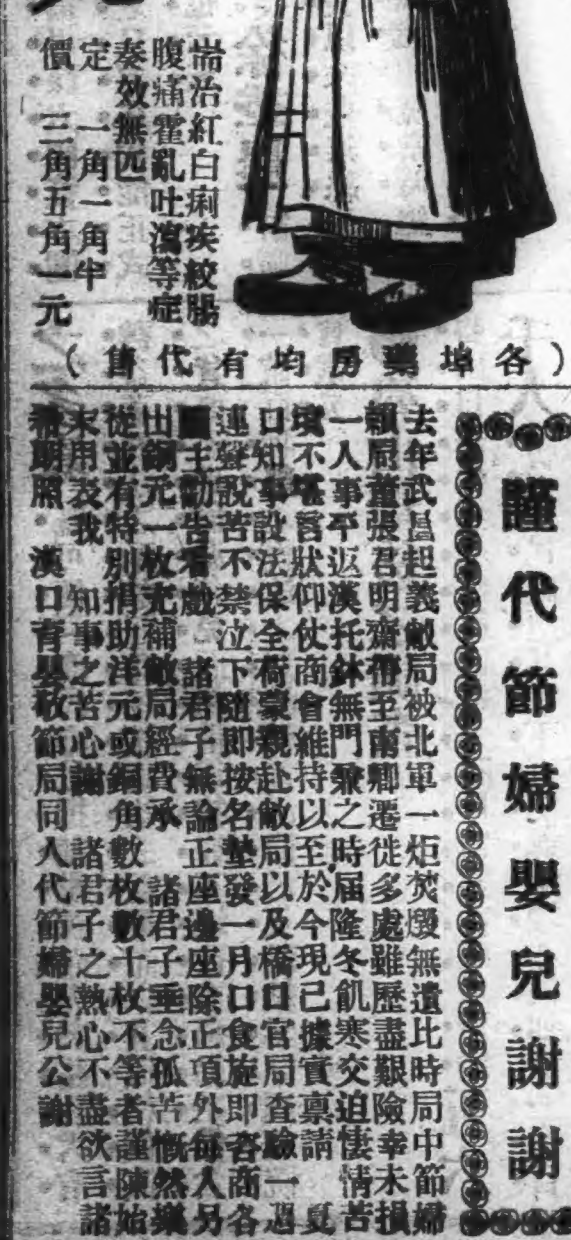 耑治紅白痢疾絞腸
腹痛霍亂吐瀉等症
奏效無匹
定 一角一角半
價 三角五角一元
（各埠藥房均有代售）
謹代節婦嬰兒謝謝
去年武昌起義敝局被北軍一炬焚燬無遺比時局中節婦
賴局董張君明齋帶至南鄉遷徙多處雖歷盡艱險幸未損
一人事平返漢托鉢無門兼之時届隆冬飢寒交迫悽情苦
境不堪言狀仰仗商會維持以至於今現已據實禀請 夏
口知事設法保全荷蒙親赴敝局以及橋口官局查驗一過
連聲說苦不禁泣下隨即按名墊發一月口食旋即咨商各
園主勸告看戲 諸君子無論正座邊座除正項外每人另
出銅元一枚充補敝局經費承 諸君子垂念孤苦慨然樂
從並有特別捐助洋元或銅角數枚數十枚不等者謹陳始
末用表我 知事之苦心謝 諸君子之熱心不盡欲言諸
希朗照 漢口育嬰敬節局同人代節婦嬰兒公謝